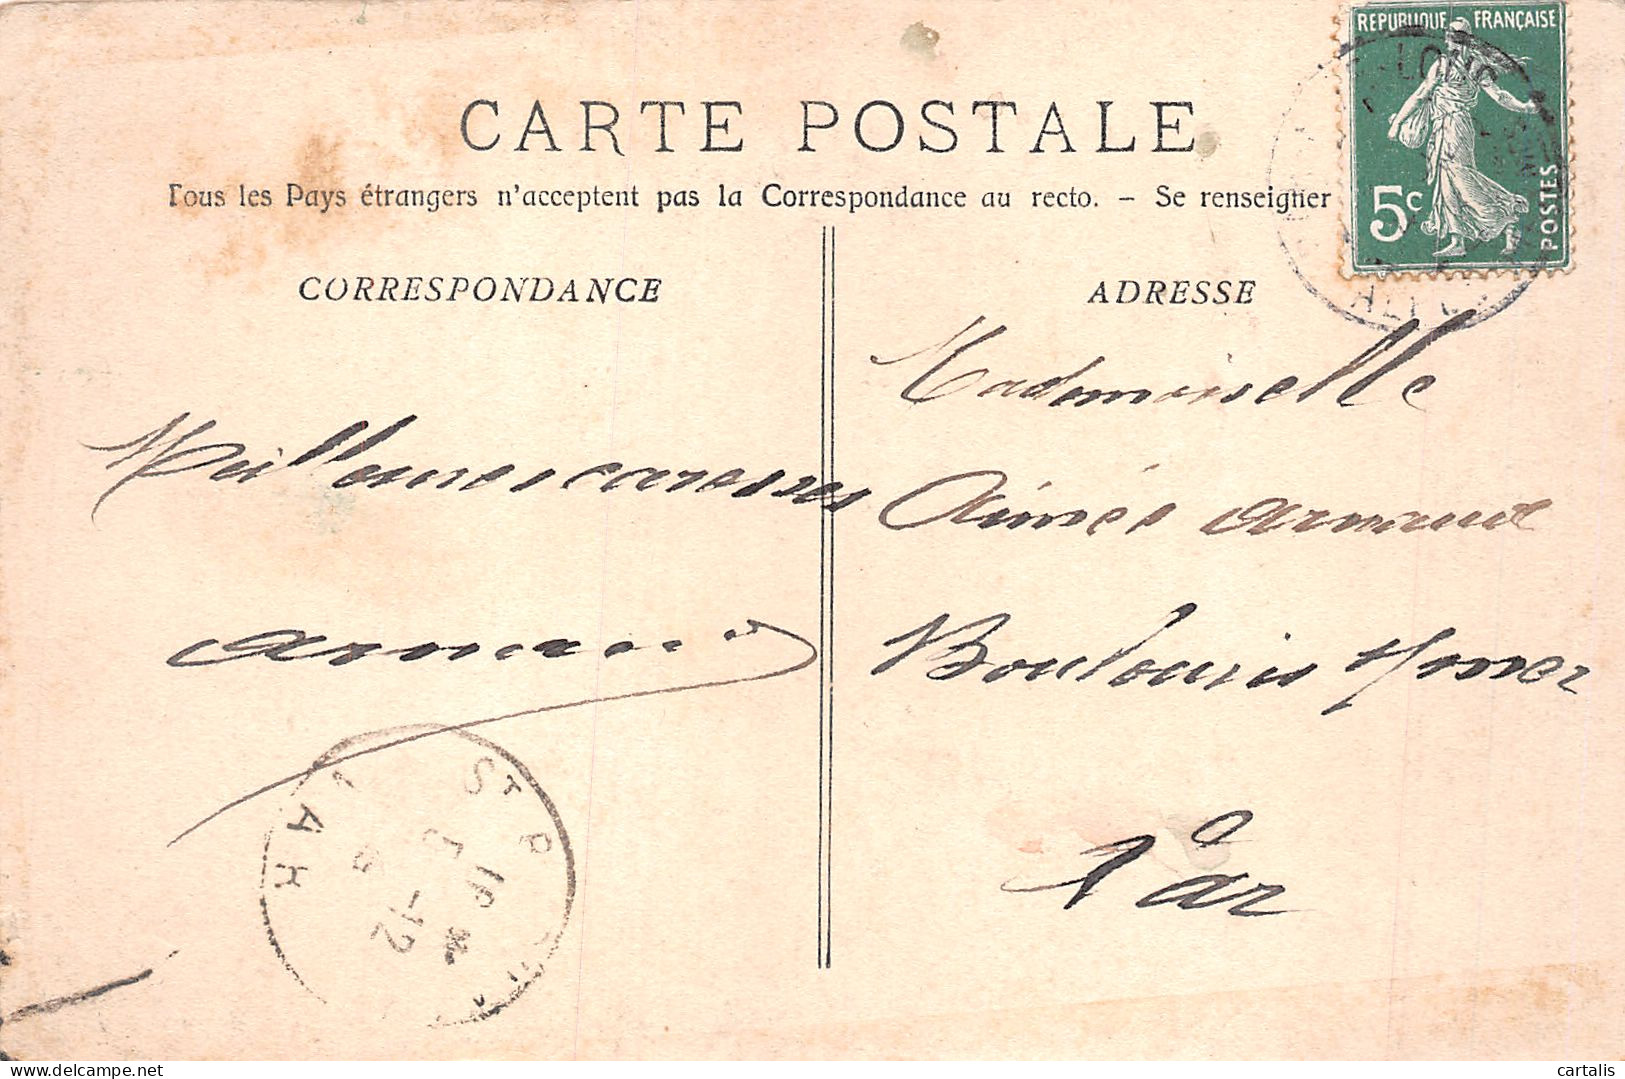 REPUBLIQUE FRANÇAISE
5c
POSTES
CARTE POSTALE
Tous les Pays étrangers n'acceptent pas la Correspondance au recto. – Se renseigner
CORRESPONDANCE
Meilleures caresses
Armand
ADRESSE
Mademoiselle
Aimée Armand
Boulouris s/mer
Var
ST R
VAR
16 *
5 -12
cartalis
delcampe.net